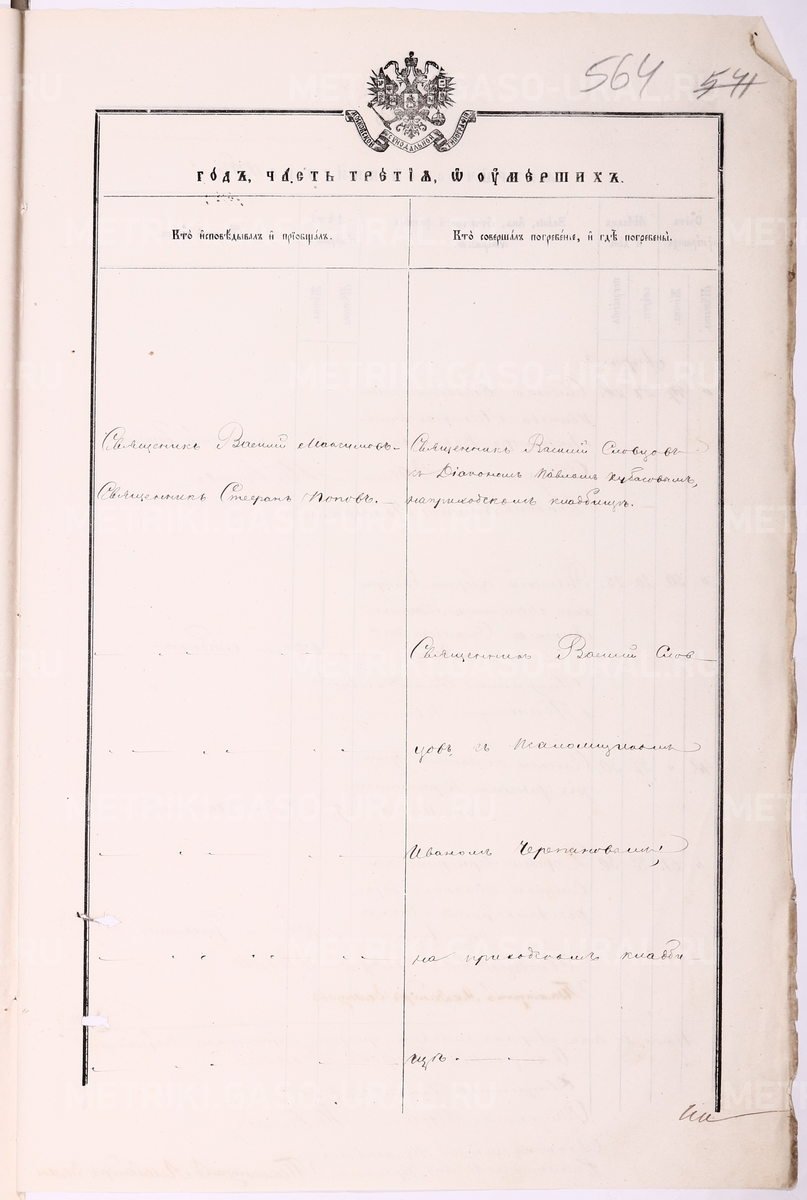 564 541
МОСКОВСКОЙ СѴНОДАЛЬНОЙ ТИПОГРАФІИ
го́дъ, ча́сть тре́тїѧ, ѡ҆ ᲂу҆ме́ршихъ.
Кто̀ и҆сповѣ́дывалъ и҆ прїѻбща́лъ.
Кто̀ соверша́лъ погребе́нїе, и҆ гдѣ̀ погребены̀.
Священникъ Василій Максимовъ.
Священникъ Стефанъ Поповъ.
Священникъ Василій Словцовъ
съ Діакономъ Павломъ Кубасовымъ,
на приходскомъ кладбищѣ.
Священникъ Василій Слов
цовъ, съ Псаломщикомъ
Иваномъ Черепановымъ,
на приходскомъ кладби
щѣ.
METRIKI.GASO-URAL.RU